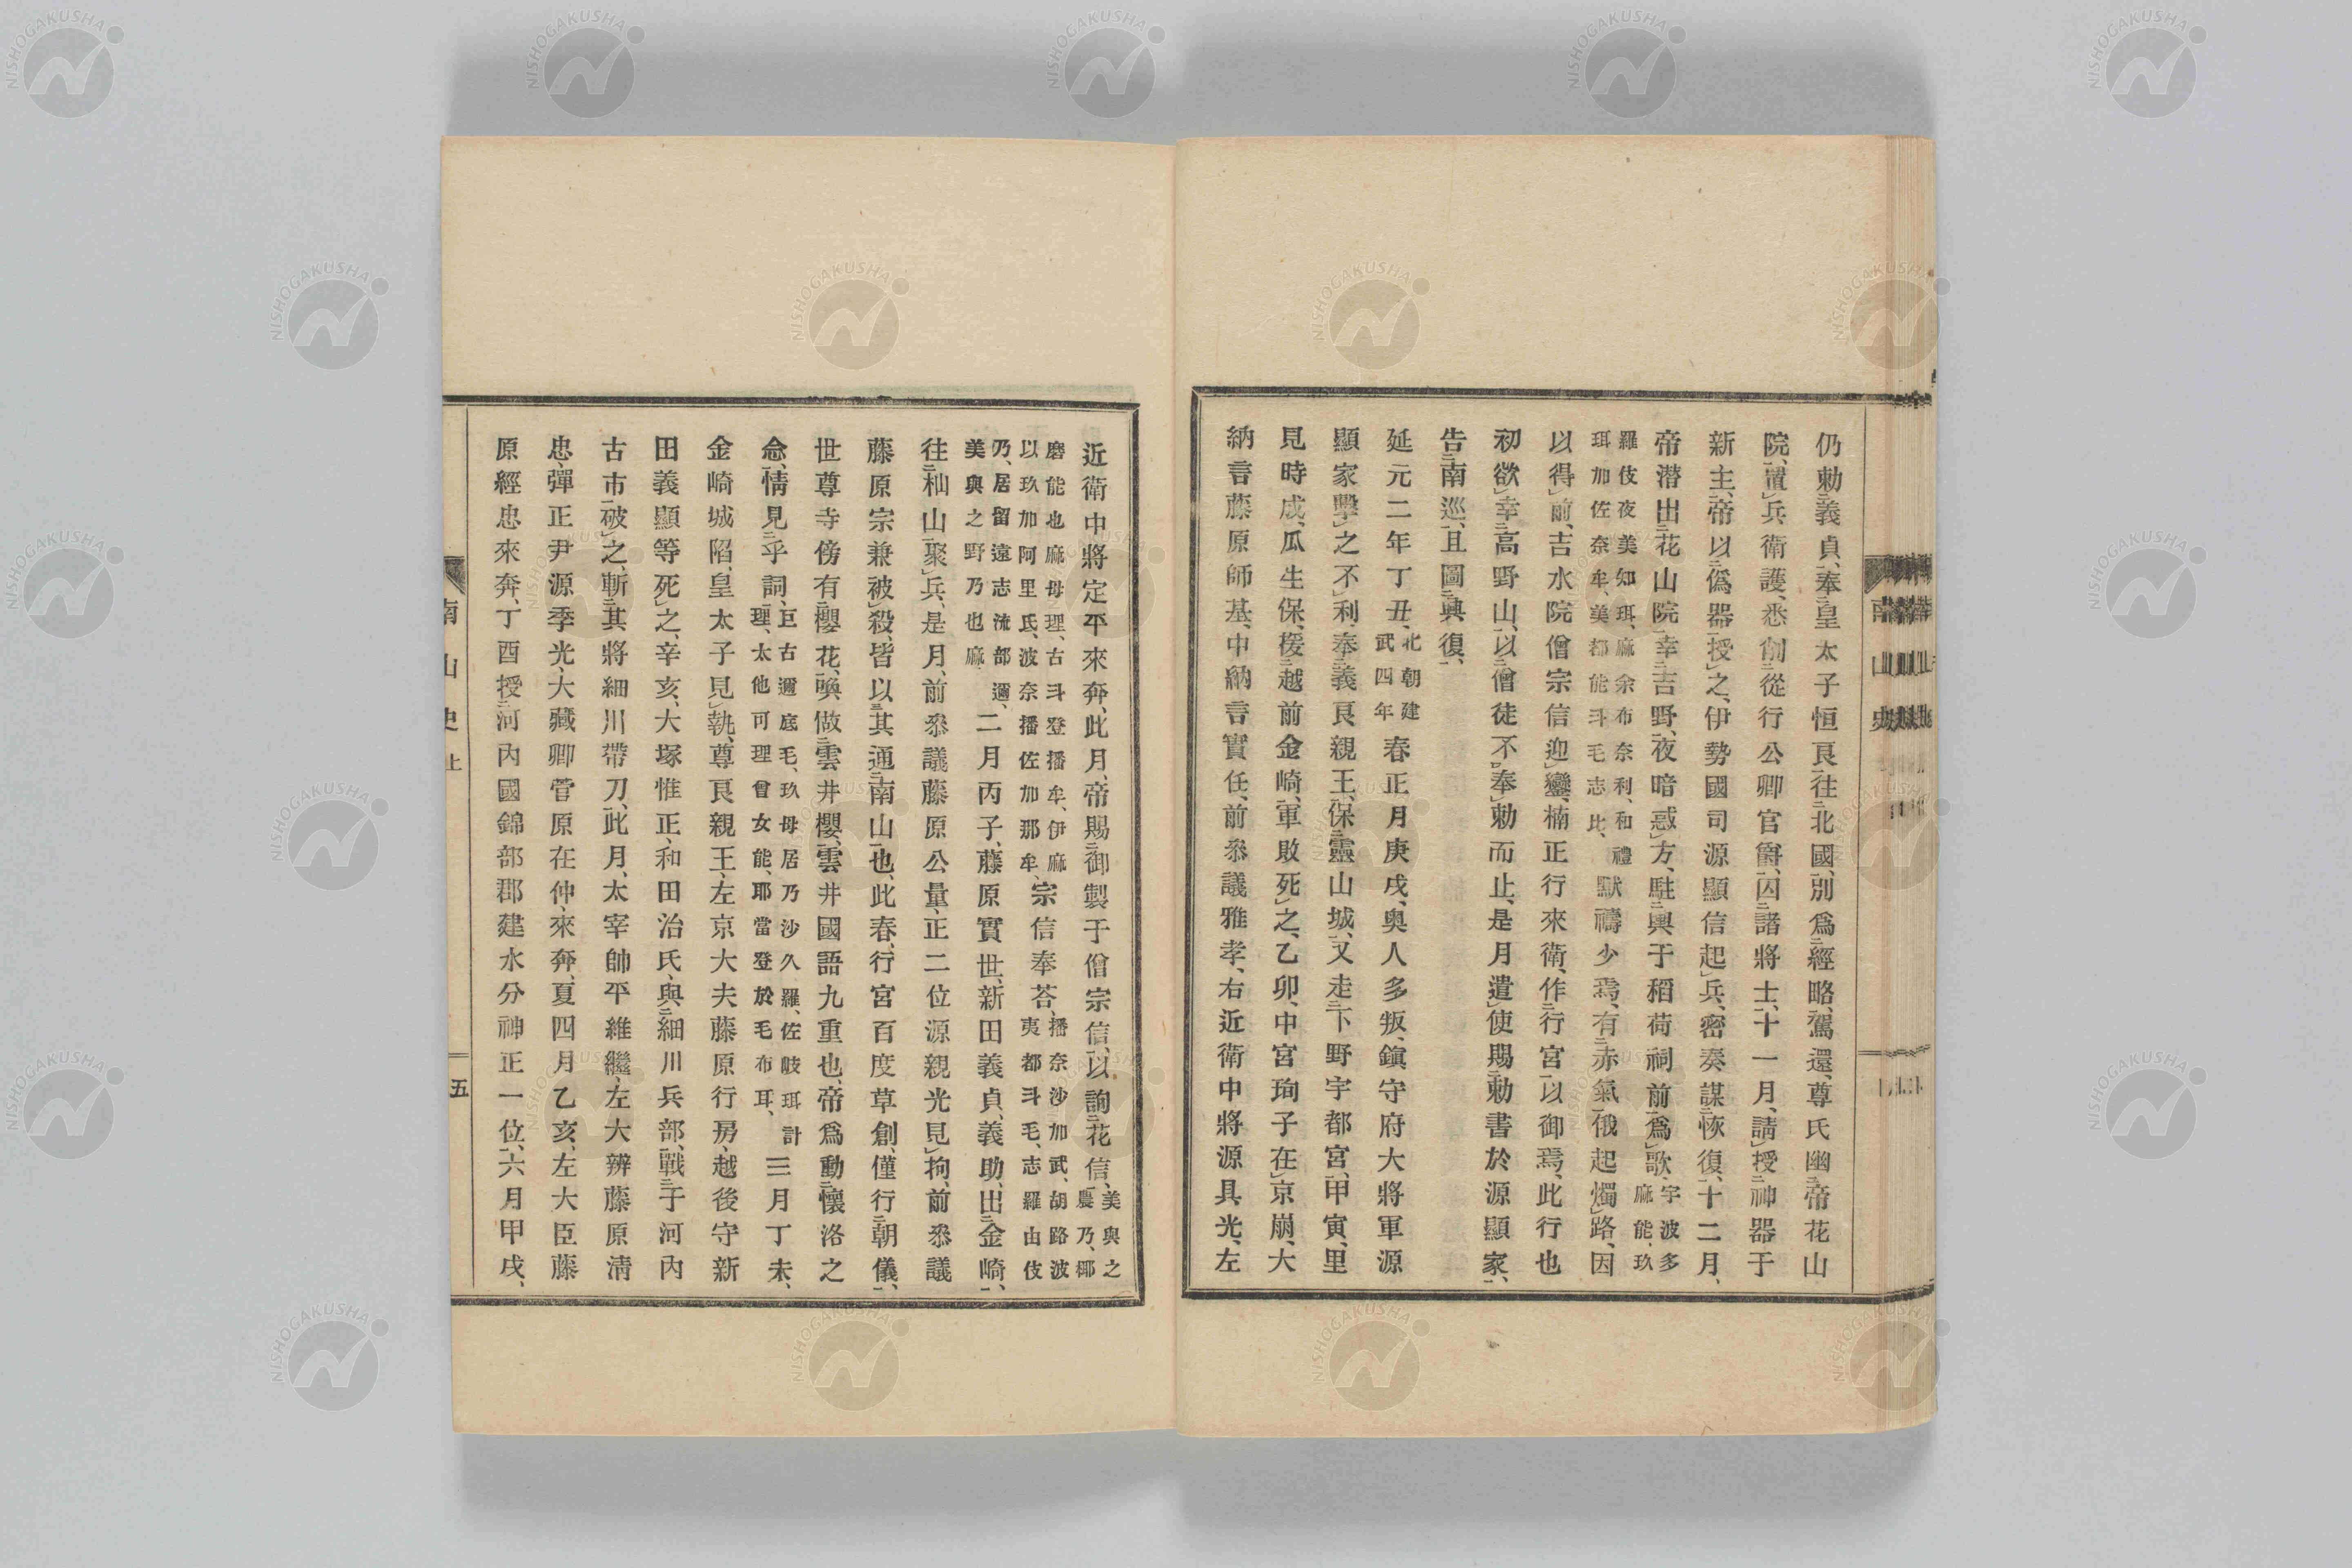 仍勅義貞、奉皇太子恒良往北國、別爲經略、駕還、尊氏幽帝花山
院、置兵衛護、悉削從行公卿官爵、囚諸將士、十一月、請授神器于
新主、帝以僞器授之、伊勢國司源顯信起兵、密奏謀恢復、十二月、
帝潜出花山院、幸吉野、夜暗惑方、駐輿于稻荷祠前、爲歌、宇波多麻能、玖
羅伎夜美知珥、麻余布奈利、和禮珥加佐奈牟、美都能斗毛志比、默禱少焉、有赤氣、俄起燭路、因
以得前、吉水院僧宗信迎鑾、楠正行來衛、作行宮以御焉、此行也
初欲幸高野山、以僧徒不奉勅而止、是月遣使賜勅書於源顯家、
告南巡、且圖興復、
延元二年丁丑、北朝建武四年春正月庚戌、奥人多叛、鎭守府大將軍源
顯家擊之不利、奉義良親王、保靈山城、又走下野宇都宮、甲寅、里
見時成、瓜生保、援越前金崎、軍敗死之、乙卯、中宮珣子在京崩、大
納言藤原師基、中納言實任、前叅議雅孝、右近衛中將源具光、左
近衛中將定平來奔、此月、帝賜御製于僧宗信、以詢花信、美與之農乃、椰
磨能也麻母理、古斗登播牟、伊麻以玖加阿里氏、波奈播佐加那牟、宗信奉荅、播奈沙加武、胡路波夷都斗毛、志羅由伎
乃、居留遠志流部邇、美與之野乃也麻、二月丙子、藤原實世、新田義貞、義助、出金崎、
往杣山聚兵、是月、前叅議藤原公量、正二位源親光見拘、前叅議
藤原宗兼被殺、皆以其通南山也、此春、行宮百度草創、僅行朝儀、
世尊寺傍有櫻花、喚做雲井櫻、雲井國語九重也、帝爲動懷洛之
念、情見乎詞、巨古邇底毛、玖母居乃沙久羅、佐岐珥計理、太他可理曾女能、耶當登於毛布耳、三月丁未、
金崎城陷、皇太子見執、尊良親王、左京大夫藤原行房、越後守新
田義顯等死之、辛亥、大塚惟正、和田治氏、與細川兵部、戰于河內
古市、破之、斬其將細川帶刀、此月、太宰帥平維繼、左大辨藤原清
忠、彈正尹源季光、大藏卿菅原在仲、來奔、夏四月乙亥、左大臣藤
原經忠來奔、丁酉授河內國錦部郡建水分神正一位、六月甲戌、
南山史 上
五
NISHOGAKUSHA